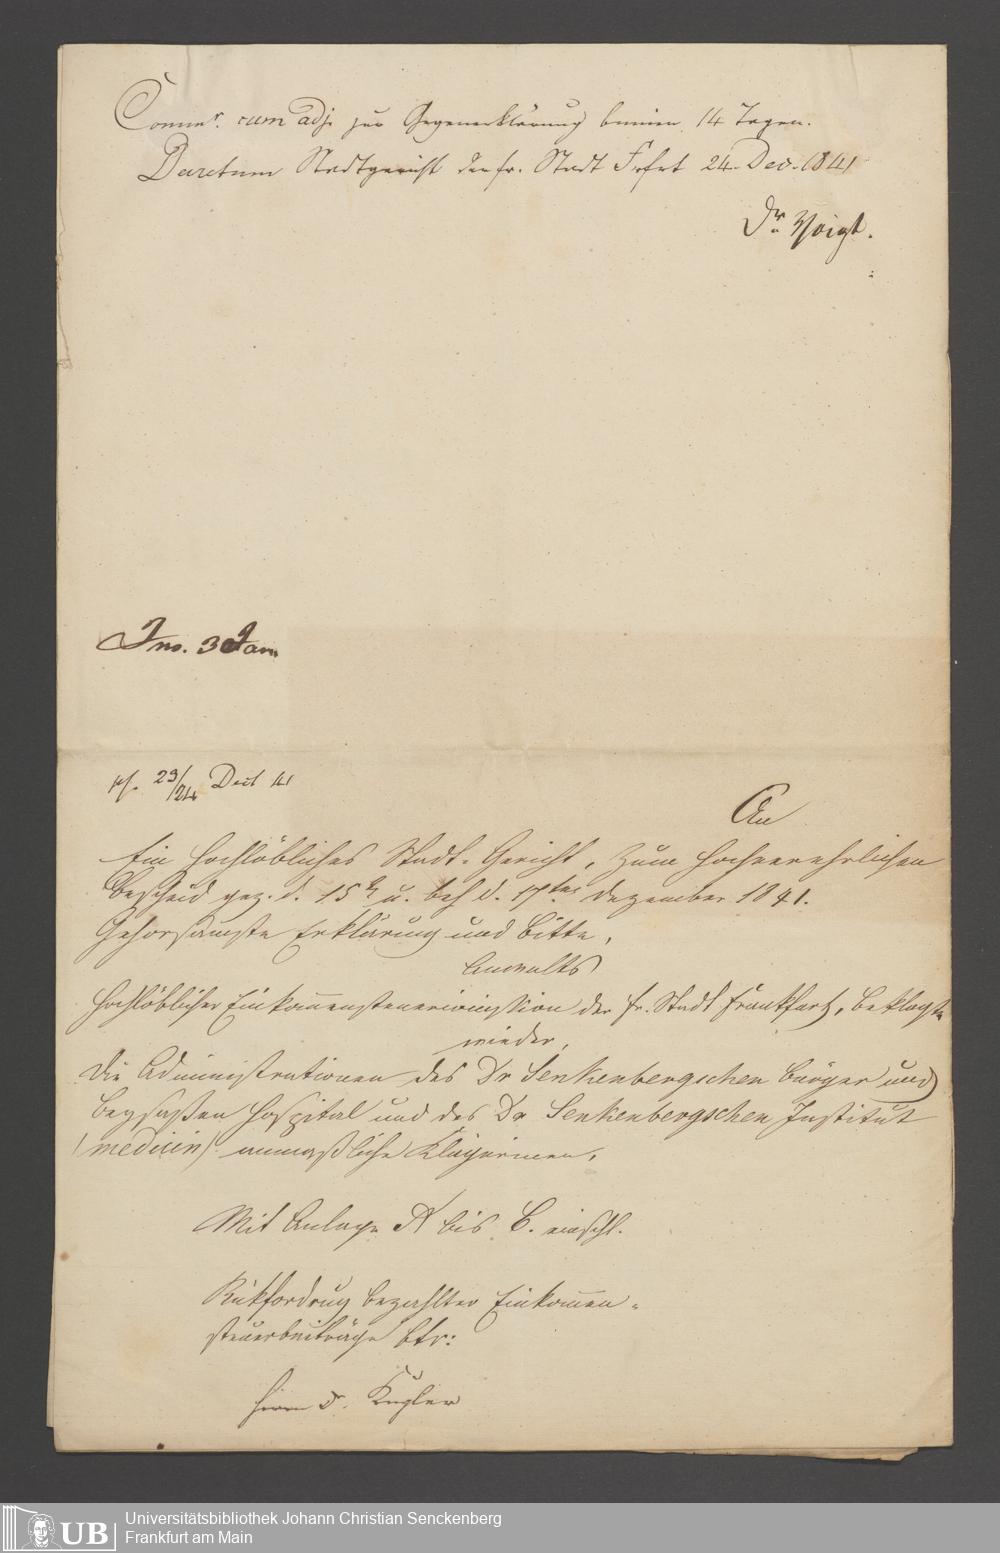 Commr. cum adj. zur Gegenerklärung binnen 14 Tagen.
Decretum Stadtgericht der fr. Stadt Frfrt 24. Dec. 1841
Dr. Voigt.
Ins. 3 Jan
ps. 23/24 Dect 41
An
Ein Hochlöbliches Stadt-Gericht, zum hochverehrlichen
Bescheid gez. d. 15t u. beh d. 17ten Dezember 1841.
Gehorsamste Erklärung und Bitte,
Anwalts
Hochlöblicher Einkommensteuercommission der fr. Stadt Frankfurt, Beklagte
wieder,
die Administrationen des Dr Senkenbergschen Bürger und
Beysaßen Hospital und des Dr Senkenbergschen Institut
(medicin) anmaßliche Klägerinnen,
Mit Anlage A bis C. einschl.
Rückfordrung bezahlter Einkommen-
steuerbeiträge btr:
Herrn Dr. Kugler
UB
Universitätsbibliothek Johann Christian Senckenberg
Frankfurt am Main